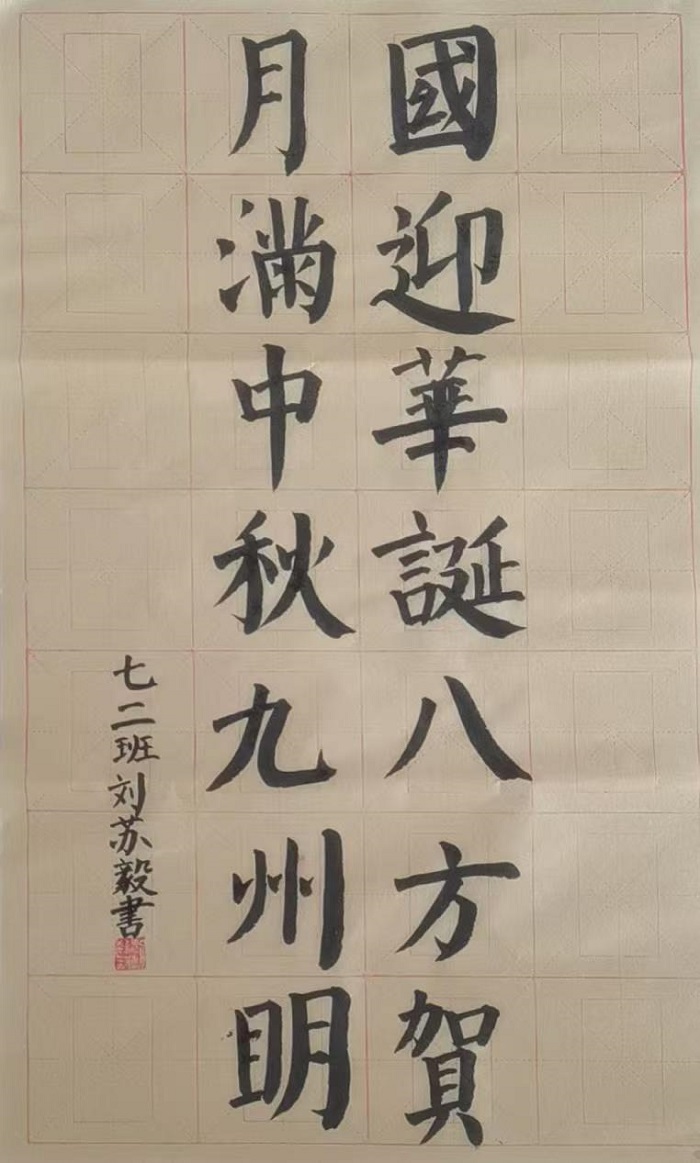 國迎華誕八方賀
月滿中秋九州明
七二班刘苏毅書